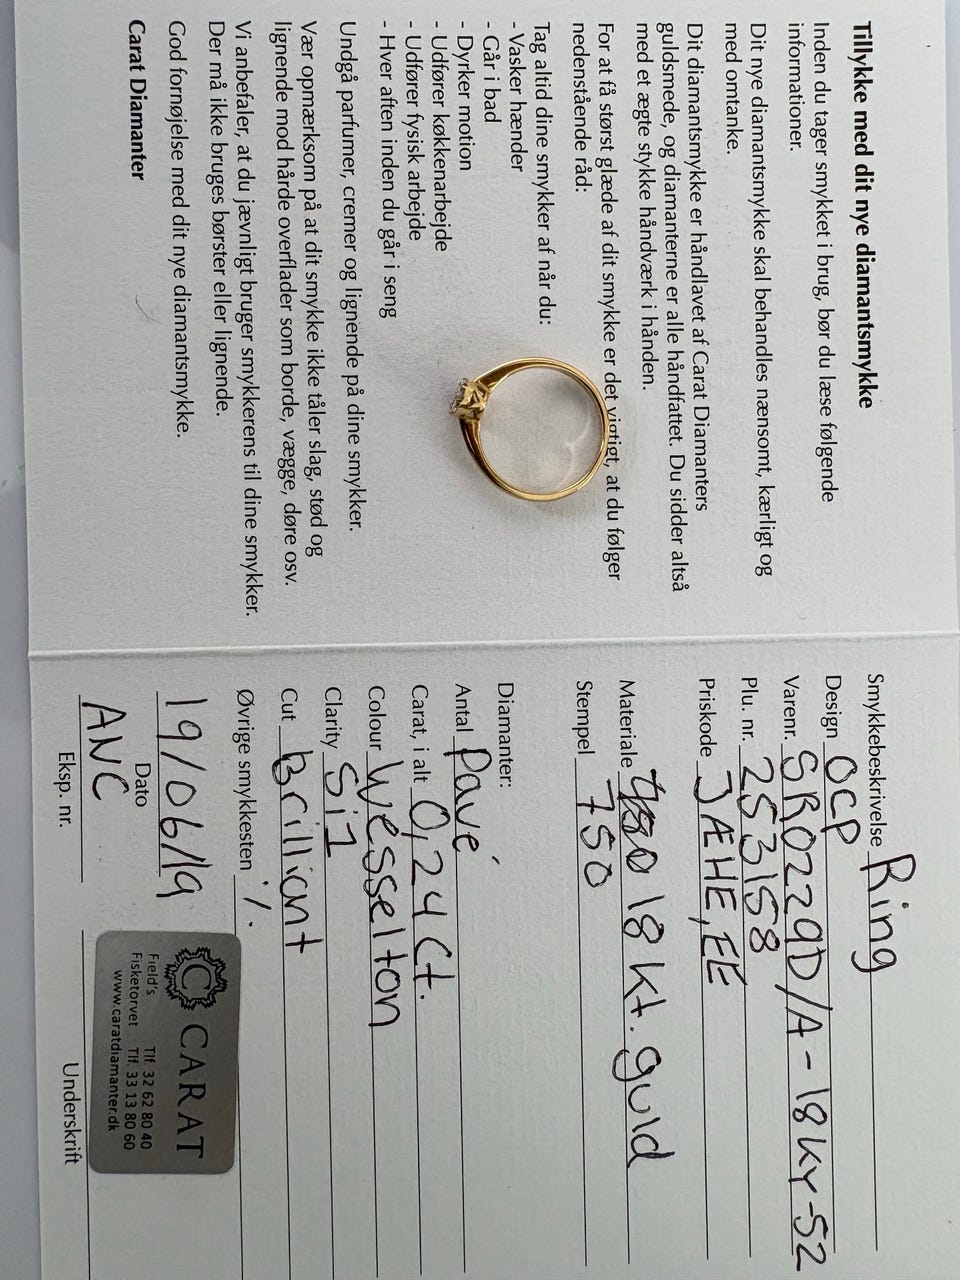 Tillykke med dit nye diamantsmykke
Inden du tager smykket i brug, bør du læse følgende
informationer.
Dit nye diamantsmykke skal behandles nænsomt, kærligt og
med omtanke.
Dit diamantsmykke er håndlavet af Carat Diamanters
guldsmede, og diamanterne er alle håndfattet. Du sidder altså
med et ægte stykke håndværk i hånden.
For at få størst glæde af dit smykke er det vigtigt, at du følger
nedenstående råd:
Tag altid dine smykker af når du:
- Vasker hænder
- Går i bad
- Dyrker motion
- Udfører køkkenarbejde
- Udfører fysisk arbejde
- Hver aften inden du går i seng
Undgå parfumer, cremer og lignende på dine smykker.
Vær opmærksom på at dit smykke ikke tåler slag, stød og
lignende mod hårde overflader som borde, vægge, døre osv.
Vi anbefaler, at du jævnligt bruger smykkerens til dine smykker.
Der må ikke bruges børster eller lignende.
God fornøjelse med dit nye diamantsmykke.
Carat Diamanter
Smykkebeskrivelse Ring
Design OCP
Varenr. SR0229D/A-18KY-52
Plu. nr. 253158
Priskode JÆHE,EE
Materiale 18 kt. guld
Stempel 750
Diamanter:
Antal Pavé
Carat, i alt 0,24 Ct.
Colour Wesselton
Clarity Si1
Cut Brilliant
Øvrige smykkesten ./.
19/06/19
Dato
ANC
Eksp. nr.
Underskrift
C CARAT
Field's Tlf. 32 62 80 40
Fisketorvet Tlf. 33 13 80 60
www.caratdiamanter.dk